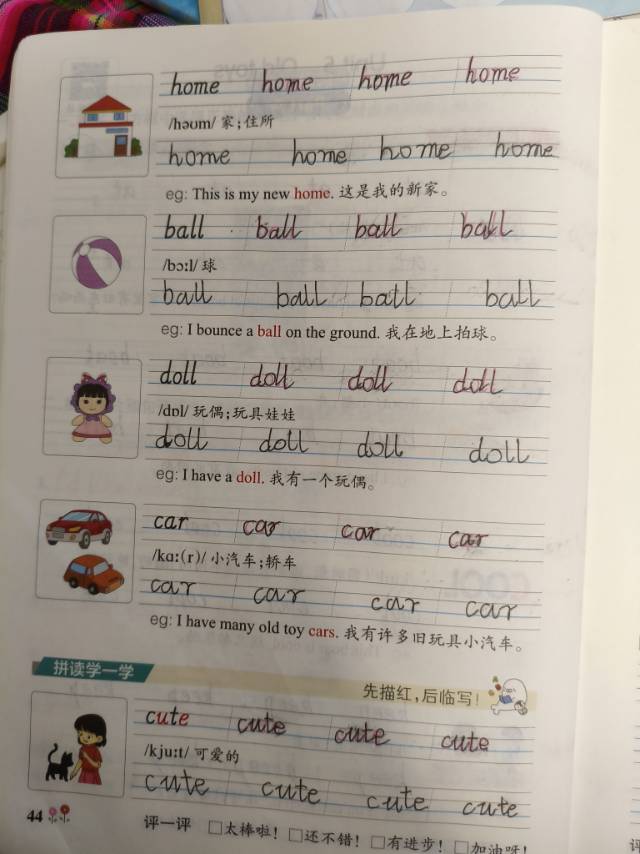 home home home home
/həʊm/ 家;住所
home home home home
eg: This is my new home. 这是我的新家。
ball ball ball ball
/bɔːl/ 球
ball ball ball ball
eg: I bounce a ball on the ground. 我在地上拍球。
doll doll doll doll
/dɒl/ 玩偶;玩具娃娃
doll doll doll doll
eg: I have a doll. 我有一个玩偶。
car car car car
/kɑː(r)/ 小汽车;轿车
car car car car
eg: I have many old toy cars. 我有许多旧玩具小汽车。
拼读学一学
先描红,后临写!
cute cute cute cute
/kjuːt/ 可爱的
cute cute cute cute
44
评一评 □太棒啦! □还不错! □有进步! □加油呀!